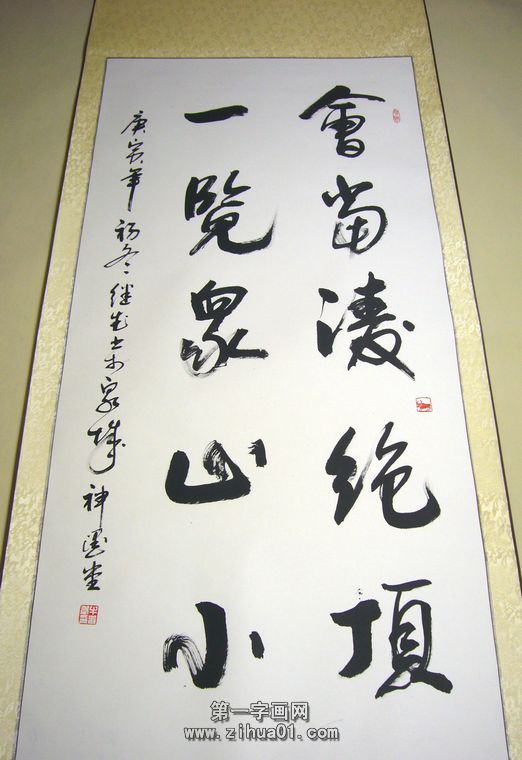 會當凌絕頂
一覽眾山小
庚寅年初冬继先书于泉城神墨堂
第一字画网
www.zihua01.com